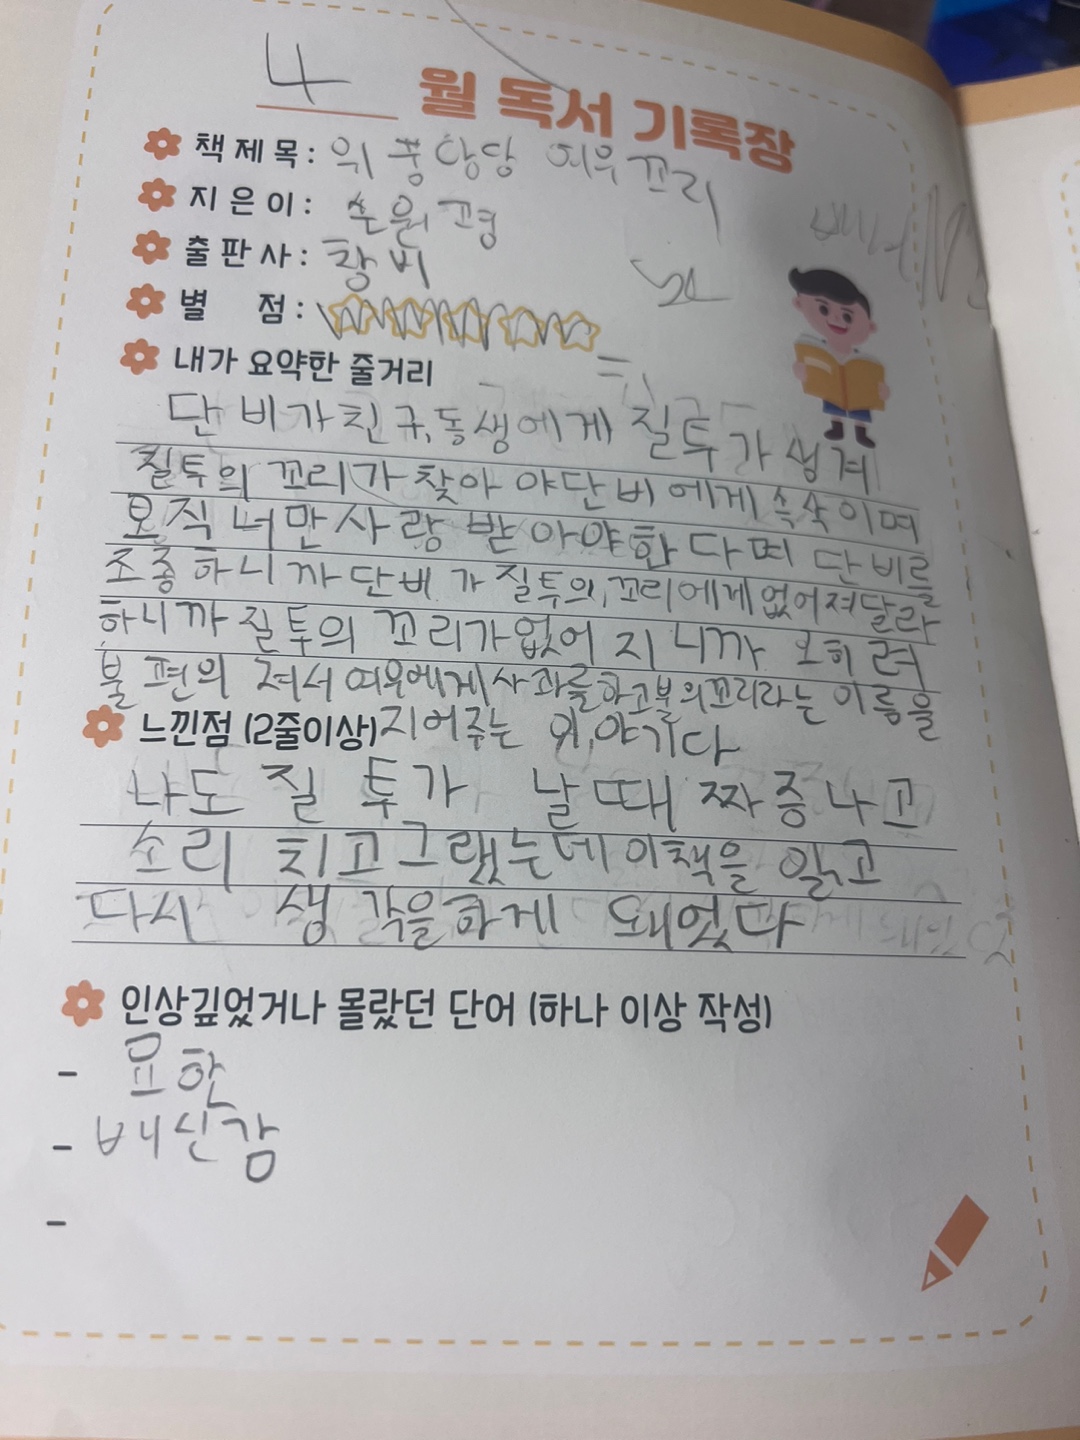 4 월 독서 기록장
책제목: 위풍당당 여우 꼬리
지은이: 손원평
출판사: 창비
별 점:
내가 요약한 줄거리
단비가친구,동생에게 질투가 생겨
질투의 꼬리가 찾아 아단비에게 속삭이며
오직 너만사랑 받아야한다며 단비를
조종하니까 단비가 질투의,꼬리에게없어져달라
하니까 질투의 꼬리가없어 지니까 오히려
불편의 져서 여우에게사과를하고불의꼬리라는 이름을
느낀점 (2줄이상)지어주는 이,야기다
나도 질투가 날때 짜증나고
소리 치고그랬는데이책을 읽고
다시 생각을하게 돼었다
인상깊었거나 몰랐던 단어 (하나 이상 작성)
- 묘한
- 배신감
-